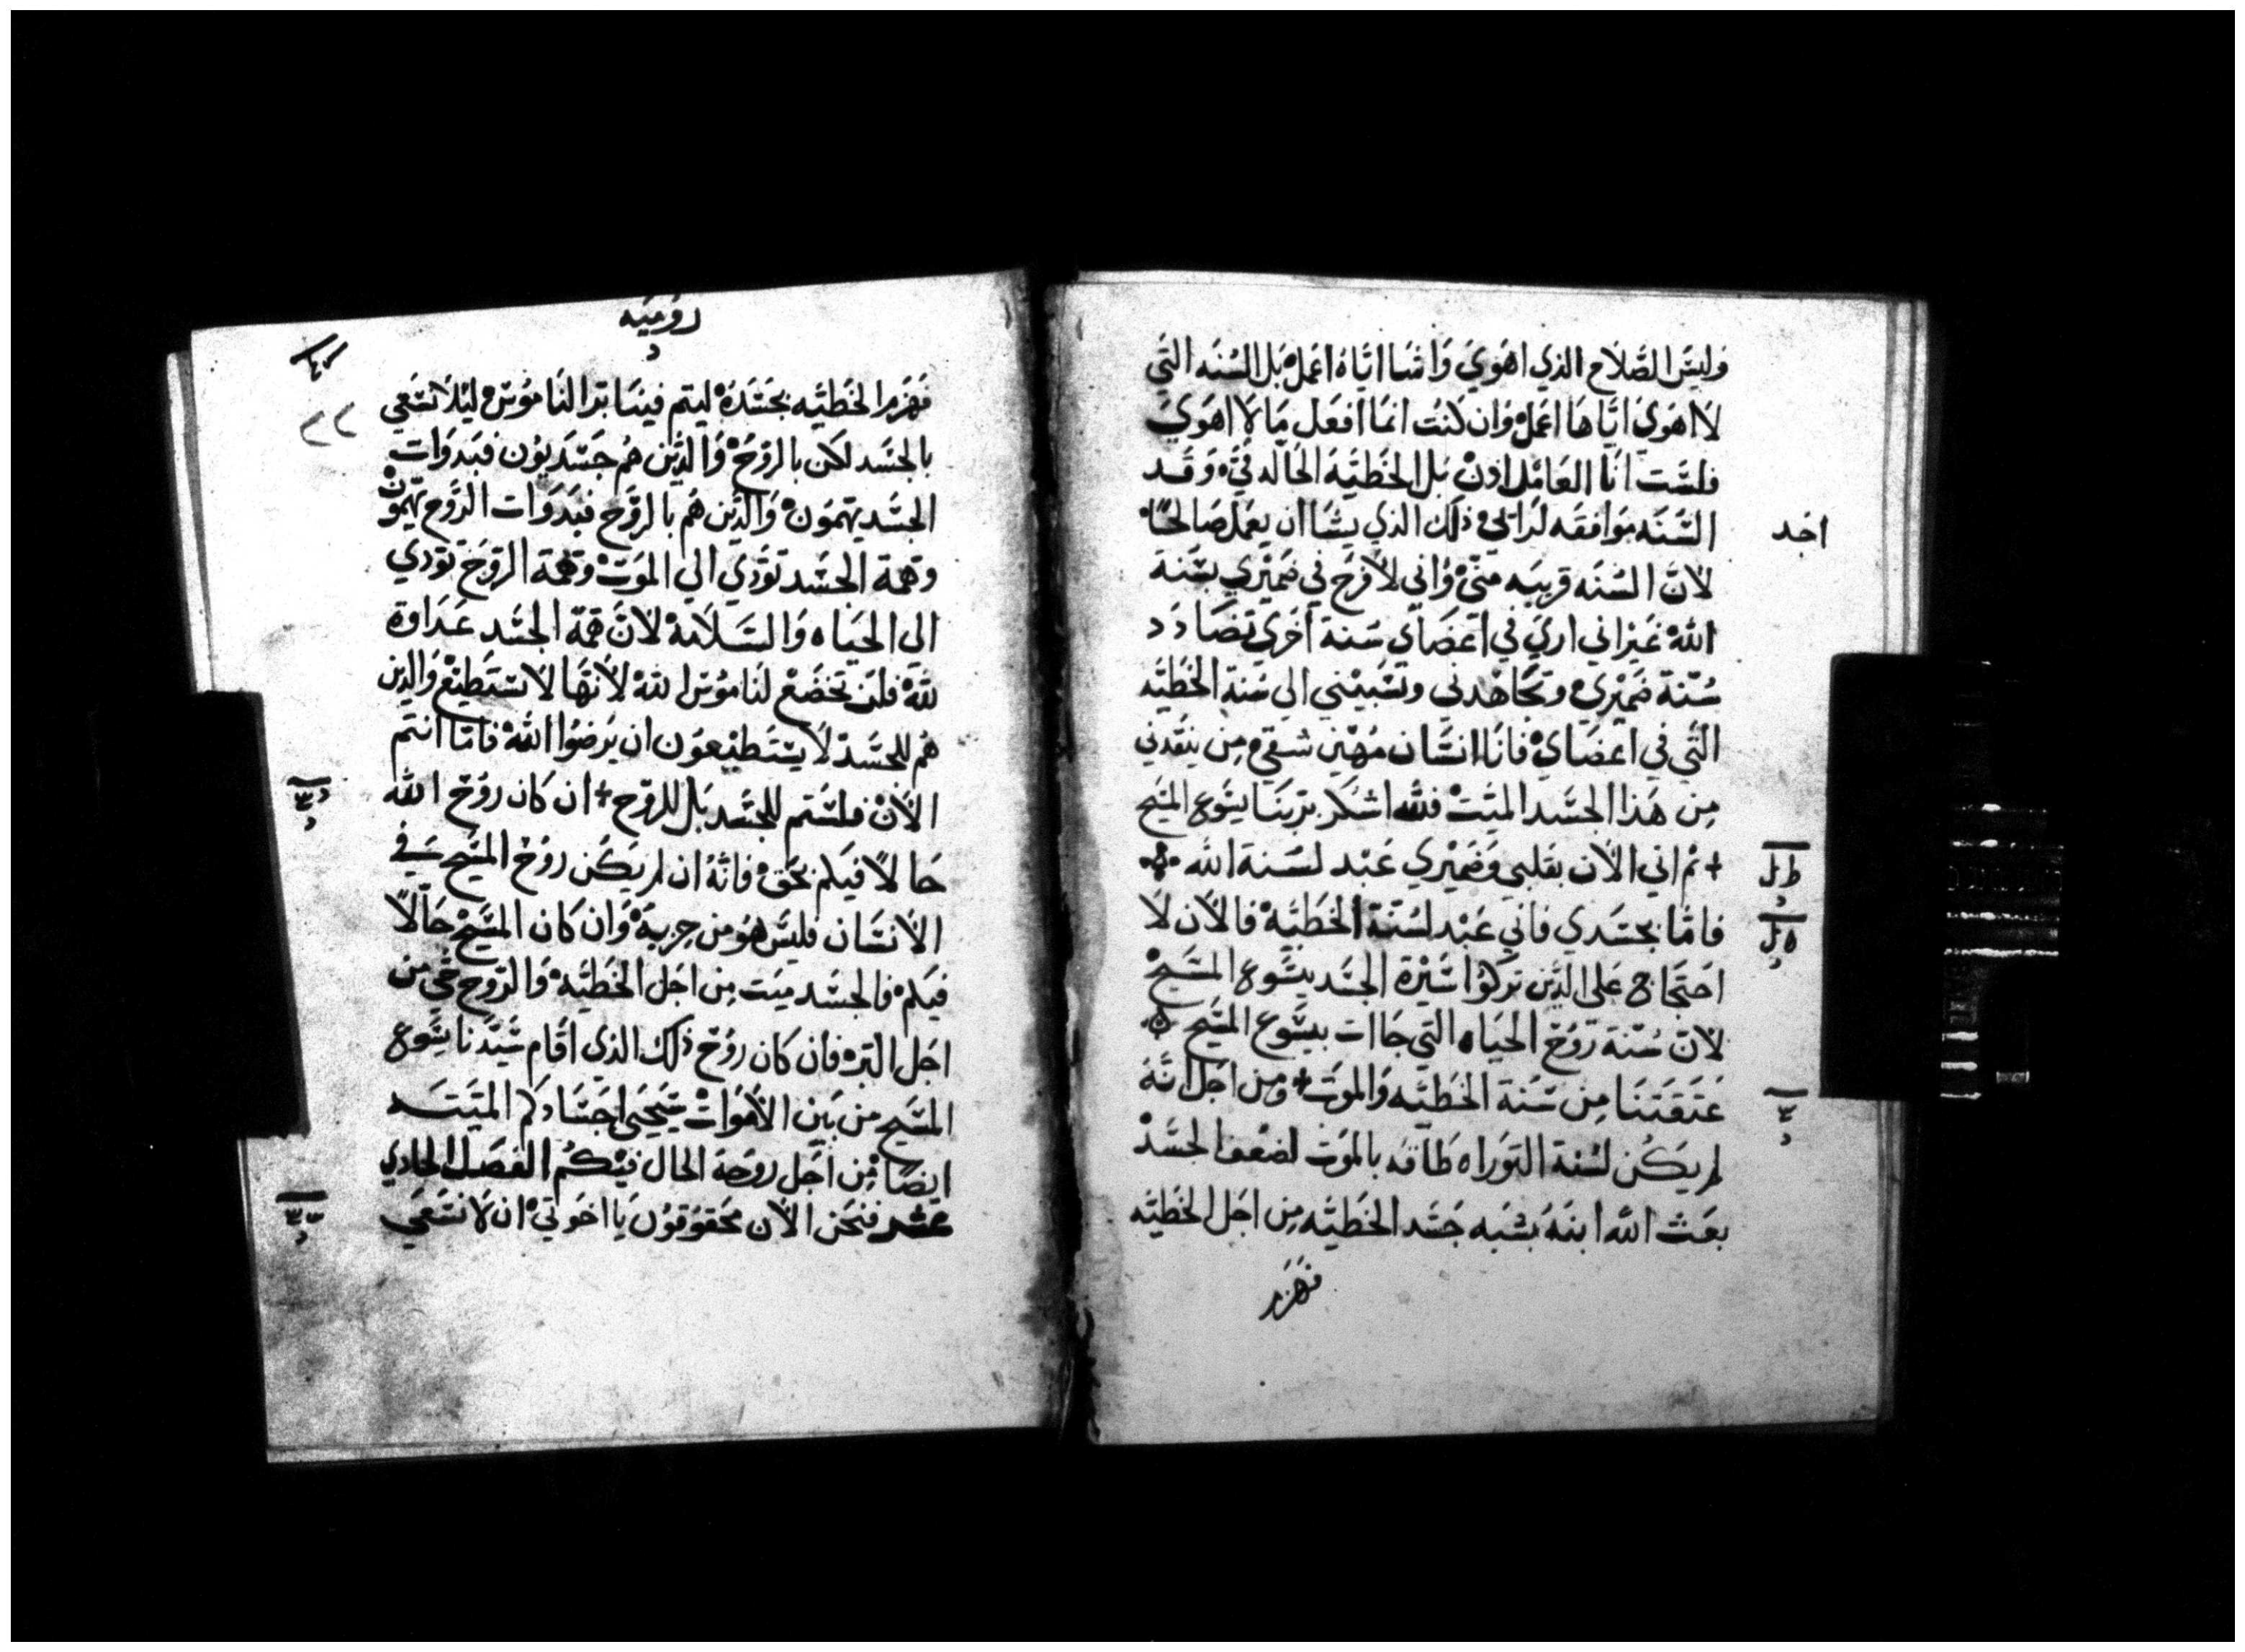 وليسَ الصَّلاح الذي اهَوي وَاشَا ايَّاه اعَمل بَل السُنَه التَي
لا اهَوي ايَّاهَا اعَمل وَان كنت انمَا افعَل مَا لا اهَوي
فلسَّت انَا العَامل اذن بَل الخطيَّه الحَاله فيَّ وَقَد
السَّنَه مَوافقَه لراي ذلك الذي يشَا ان يعَمل صَالحًا
اجد
لانَّ السُنَه قريبَه منيَّ وَاني لافرَح في ضَميْري بسَّنَة
الله غيَراني اري في اعَضَاي سُنة اخَري تضَادَد
سُنّة ضَميْري وتجَاهْدني وتسَّبيْني الي سُنة الخَطيَّه
التَّي في اعَضَايَ فانَا انسَّان مُهيَّن شقي مِن ينقدني
مِن هَذا الجسَّد الميَتْ فلله اشكر برَبنَا يسَّوع المسَّيح
+ ثم اني الاَن بقَلبي وَضَميْري عَبْد لسَّنة الله
فامَّا بجسَّدي فاني عَبْد لسُنّة الخَطيَّه فالاَن لا
احتَجَاج عَلى الذَّين ترَكوُا سَّيْرة الجسَّد بيسَّوع المسَّيحْ
لانّ سُنّة رَوُح الحيَاه التَّي جَاات بيسَّوع المسَّيح
عَتَقَتنَا مِن سَّنة الخَطيَّه وَالموَت + وَمن اجَل انّهُ
لم يكَُن لسُنة التَّوَراه طَاقه بالموَت لضعَف الجسَّدْ
بعَث الله ابنهُ بشبَه جَسَّد الخَطيَّه مِن اجَل الخَطيَّه
فَهَزم
رومَيه
٢٢
فَهَزم الخَطيَّه بجَسَّدهُ ليتم فينَا بَّر النَاموُسْ ليَلا نسَّعَي
بالجسَّد لكَن بالروُحْ وَالذيَّن هُم جَسَّديوُن فبَدوَات
الجسَّد يهَموُن وَالذيَّن هُم بالروَّح فبَدوَات الروَّح يَهموُن
وَهمَة الجسَّد توَّدي الي الموَت وَهمَة الروَح توَّدي
الى الحيَاه وَالسَّلاَمة لانَّ همَّة الجسَّد عَدَاوة
للهَّ فلَن تخَضَعْ لنَاموُسَ اللهْ لاَنهَّا لاَ تسَّتَطيْع وَالذين
هُم للجسَّدْ لاَ يسَّتَطيْعوُن ان يُرضوُا اللهْ فامّا انتَم
الاَن فلسَّتم للجسَّد بَل للروَّح + ان كَان روُحْ الله
حَالاً فيَكم بحَقْ فانَّهُ ان لم يكَُن روُحْ المسَّيح في
الاَنسَّان فليَسَّ هُوَ من حِزبهْ وَان كَان المسَّيحْ حَالاً
فيَكم فالجسَّد ميَت مِن اجَل الخَطيَّهْ وَالروَّح حَّي من
اجَل البَّر فان كَان روُحْ ذلك الذي اقَام سَّيَّدنا يسَّوع
المسَّيح من بيَن الاَموَاتْ سَّيحَيي اجَسَّادكم الميَتَه
ايضَا مِّن اجَل روَحَه الحَال فيْكُم الفصَل الحادي
عشر فنحَن الاَن محَقوُقوُن يَا اخوَتي ان لاَ نسَّعَي